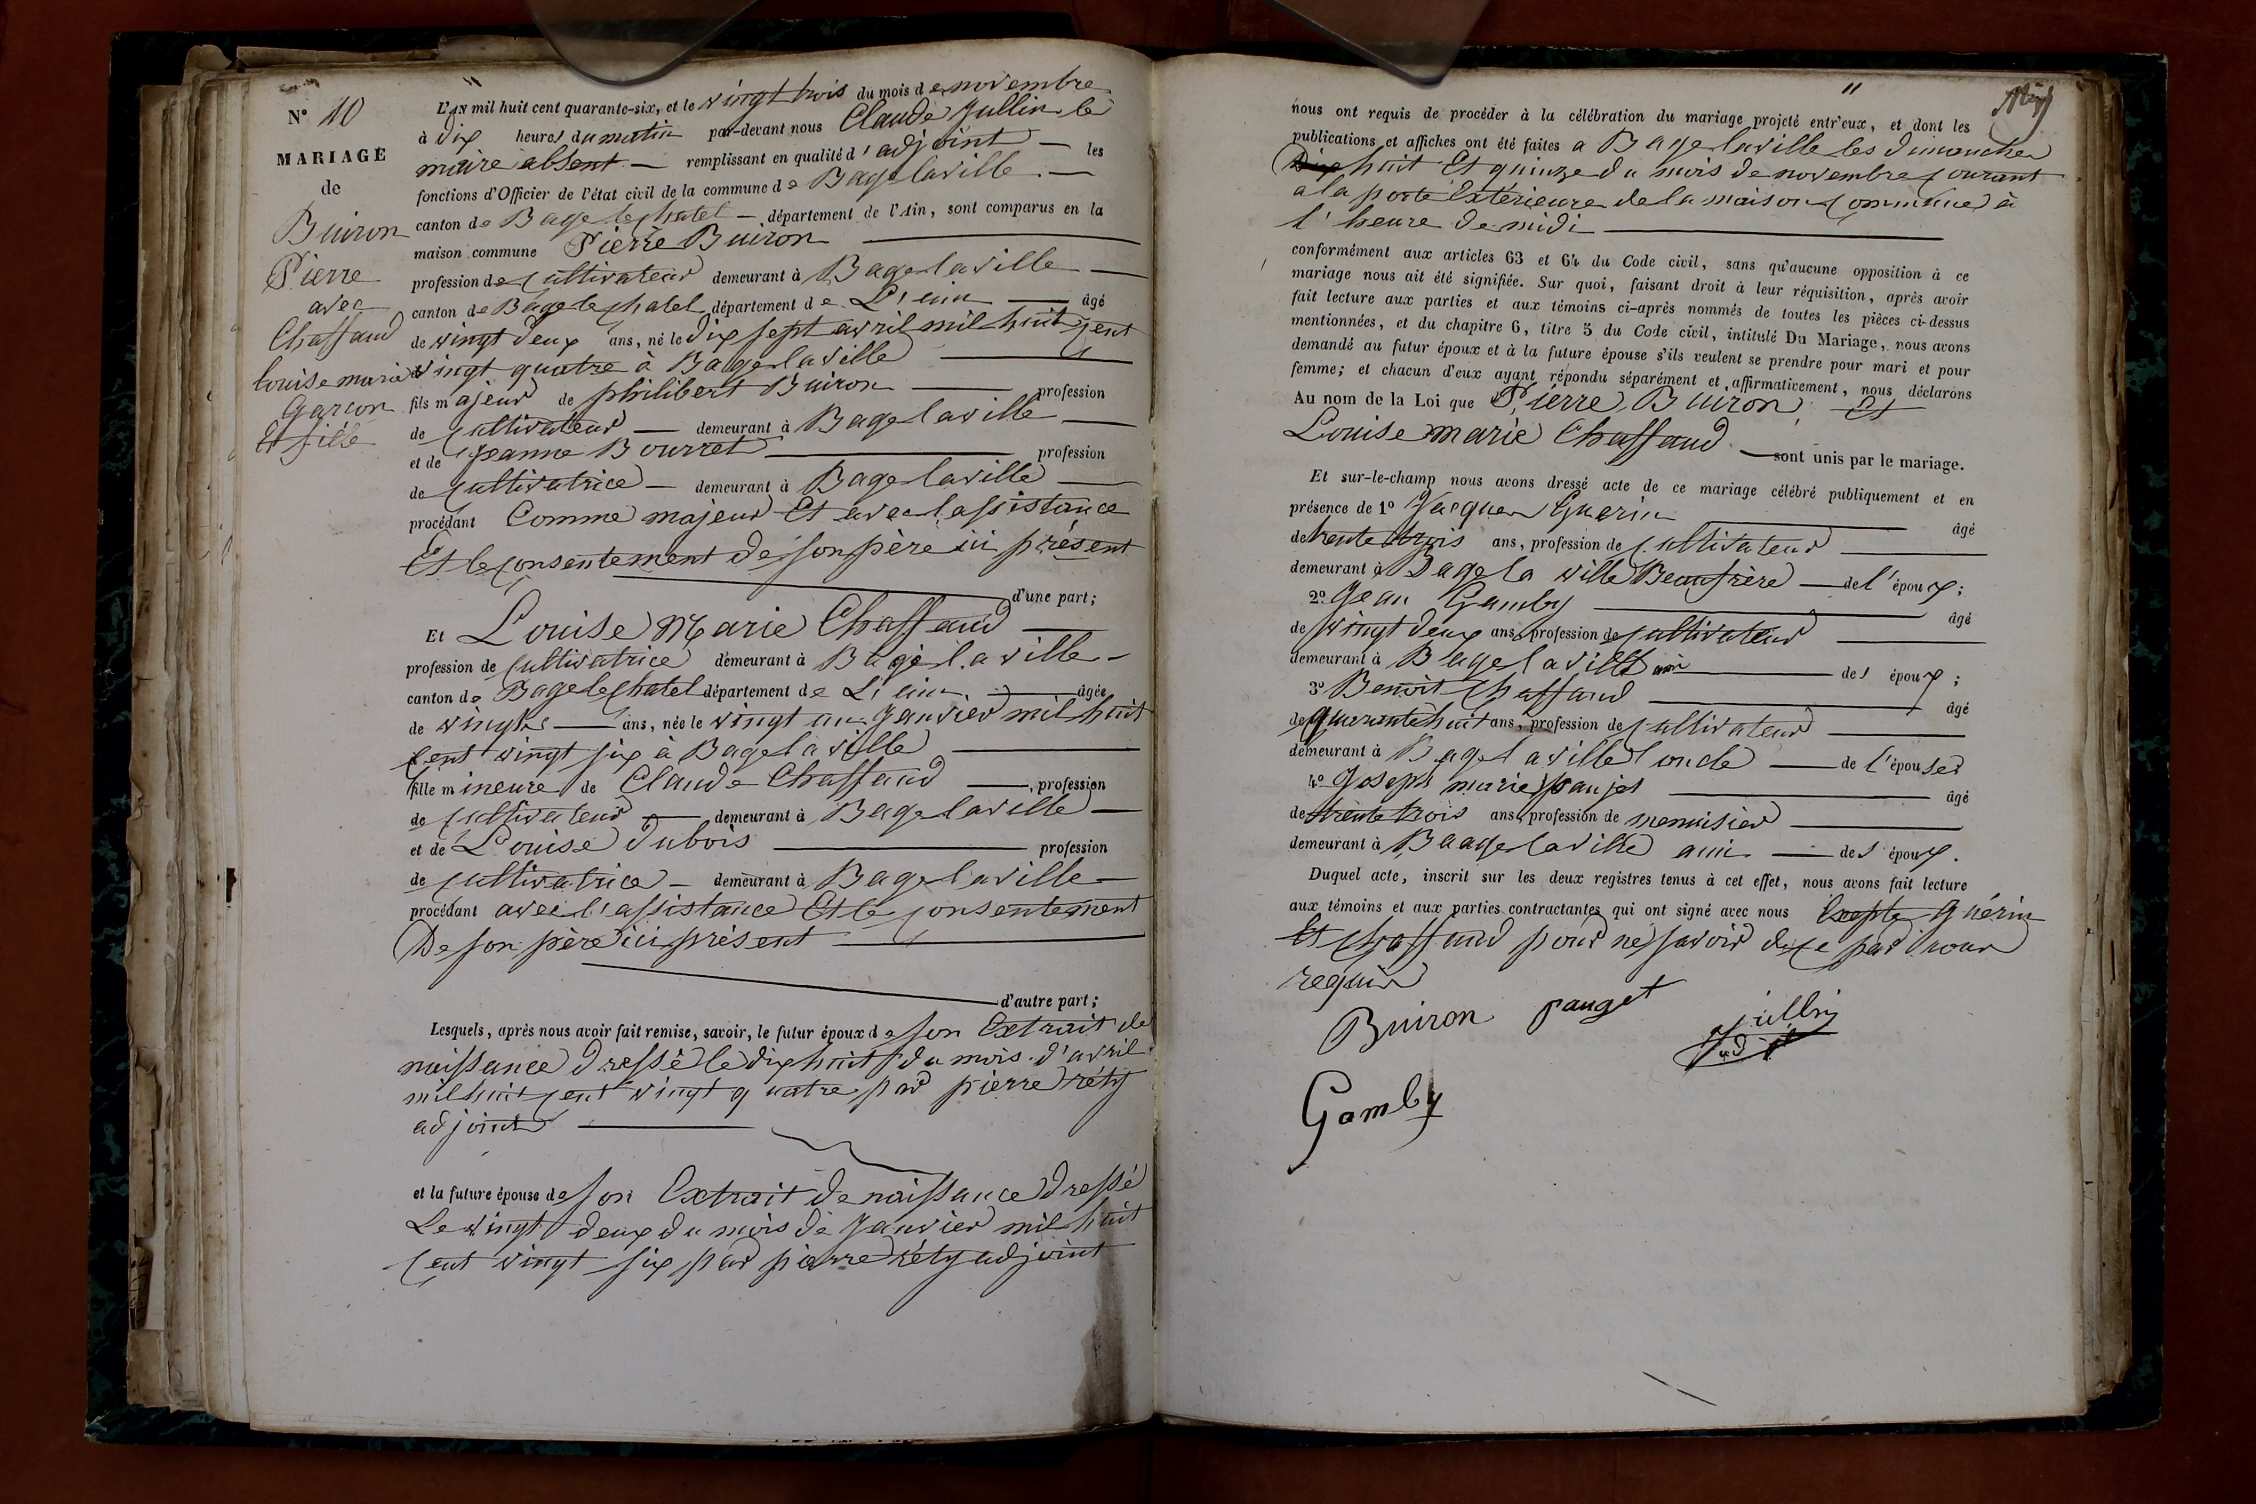 N° 10
MARIAGE
de
Buiron
Pierre
avec
Chaffaud
louise marie
Garçon
et fille
L'AN mil huit cent quarante-six, et le vingt trois du mois de novembre
à dix heures du matin par-devant nous Claude Jullin le
maire absent — remplissant en qualité d'adjoint — les
fonctions d'Officier de l'état civil de la commune de Bagelaville —
canton de Bage le chatel — département de l'Ain, sont comparus en la
maison commune Pierre Buiron
profession de cultivateur demeurant à Bagelaville —
canton de Bage le chatel département de L'ain — âgé
de vingt deux ans, né le dix sept avril mil huit cent
vingt quatre à Bagelaville
fils majeur de philibert Buiron — profession
de cultivateur — demeurant à Bagelaville —
et de jeanne Bourret — profession
de cultivatrice — demeurant à Bagelaville —
procédant Comme majeur Et avec l'assistance
Et le consentement de son père ici présent
d'une part;
Et Louise Marie Chaffaud —
profession de cultivatrice demeurant à Bagelaville —
canton de Bage le chatel département de L'ain — âgée
de vingt — ans, née le vingt un janvier mil huit
cent vingt six à Bagelaville
fille mineure de Claude Chaffaud — profession
de cultivateur — demeurant à Bagelaville —
et de Louise Dubois — profession
de cultivatrice — demeurant à Bagelaville —
procédant avec l'assistance Et le consentement
De son père ici présent
d'autre part;
Lesquels, après nous avoir fait remise, savoir, le futur époux de son Extrait de
naissance dressé le dix huit du mois d'avril
mil huit cent vingt quatre par pierre réty
adjoint
et la future épouse de son Extrait de naissance dressé
Le vingt deux du mois de janvier mil huit
cent vingt six par pierre réty adjoint
11
nous ont requis de procéder à la célébration du mariage projeté entr'eux, et dont les
publications et affiches ont été faites a Bagelaville les dimanches
huit Et quinze du mois de novembre courant
a la porte Extérieure de la maison commune à
l'heure de midi
conformément aux articles 63 et 64 du Code civil, sans qu'aucune opposition à ce
mariage nous ait été signifiée. Sur quoi, faisant droit à leur réquisition, après avoir
fait lecture aux parties et aux témoins ci-après nommés de toutes les pièces ci-dessus
mentionnées, et du chapitre 6, titre 5 du Code civil, intitulé Du Mariage, nous avons
demandé au futur époux et à la future épouse s'ils veulent se prendre pour mari et pour
femme; et chacun d'eux ayant répondu séparément et affirmativement, nous déclarons
Au nom de la Loi que Pierre Buiron Et
Louise marie Chaffaud — sont unis par le mariage.
Et sur-le-champ nous avons dressé acte de ce mariage célébré publiquement et en
présence de 1° Jacques Guerin — âgé
de trente trois ans, profession de cultivateur
demeurant à Bagela ville Beaufrère — de l'époux;
2° Jean Gamby — âgé
de vingt deux ans, profession de cultivateur
demeurant à Bagelaville ami — des époux;
3° Benoit Chaffaud — âgé
de quarante huit ans, profession de cultivateur
demeurant à Bagelaville l'oncle — de l'épouse
4° Joseph marie paujet — âgé
de trente trois ans, profession de menuisier
demeurant à Baagelaville ami — des époux.
Duquel acte, inscrit sur les deux registres tenus à cet effet, nous avons fait lecture
aux témoins et aux parties contractantes qui ont signé avec nous Excepté Guérin
Et chaffaud pour ne savoir de ce par nous
requis
Buiron pauget jullin
adjt
Gamby